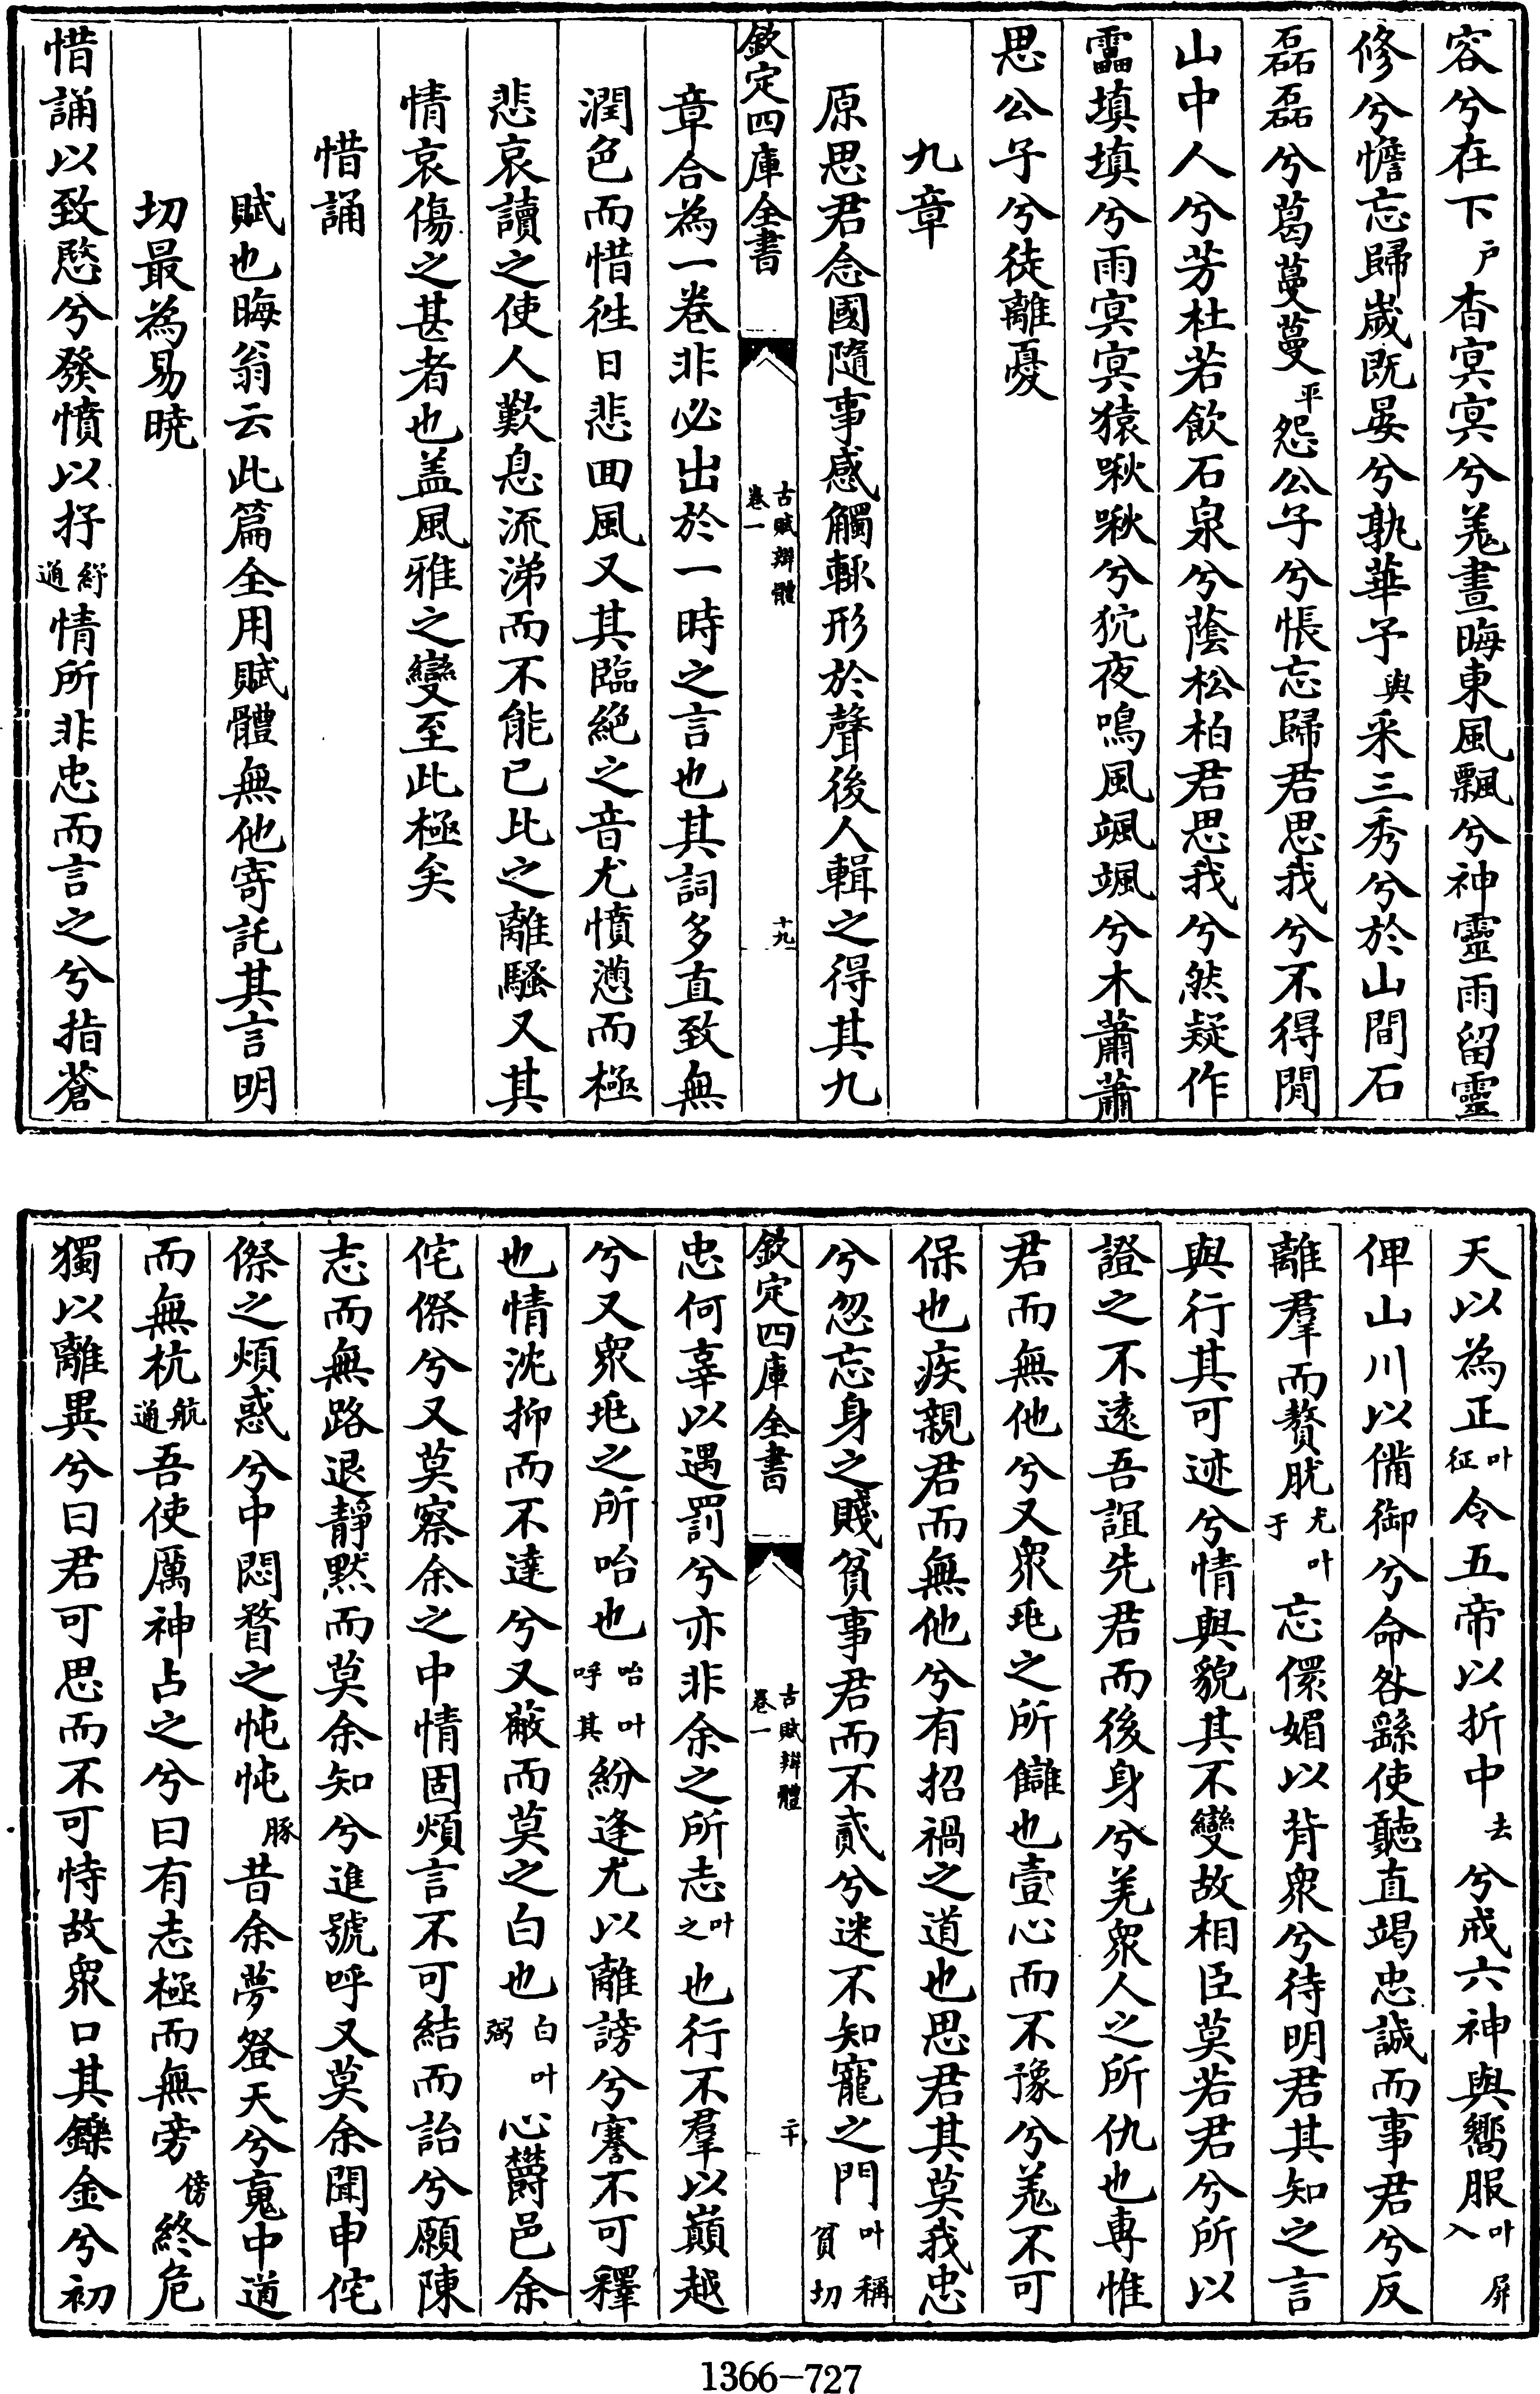 容兮在下戶杳冥冥兮羌晝晦東風飄兮神靈雨留靈
修兮憺忘歸歲既晏兮孰華予與采三秀兮於山間石
磊磊兮葛蔓蔓平怨公子兮悵忘歸君思我兮不得閒
山中人兮芳杜若飲石泉兮蔭松柏君思我兮然疑作
靁填填兮雨冥冥猿啾啾兮狖夜鳴風颯颯兮木蕭蕭
思公子兮徒離憂
九章
原思君念國隨事感觸輒形於聲後人輯之得其九
欽定四庫全書
古賦辯體
卷一
十九
章合為一卷非必出於一時之言也其詞多直致無
潤色而惜往日悲回風又其臨絶之音尤憤懣而極
悲哀讀之使人歎息流涕而不能已比之離騷又其
情哀傷之甚者也盖風雅之變至此極矣
惜誦
賦也晦翁云此篇全用賦體無他寄託其言明
切最為易曉
惜誦以致愍兮發憤以抒紓通情所非忠而言之兮指蒼
天以為正叶征令五帝以折中去兮戒六神與嚮服叶屏入
俾山川以備御兮命咎繇使聽直竭忠誠而事君兮反
離羣而贅肬尤叶于忘儇媚以背衆兮待明君其知之言
與行其可迹兮情與貌其不變故相臣莫若君兮所以
證之不遠吾誼先君而後身兮羌衆人之所仇也専惟
君而無他兮又衆兆之所讎也壹心而不豫兮羌不可
保也疾親君而無他兮有招禍之道也思君其莫我忠
兮忽忘身之賤貧事君而不貳兮迷不知寵之門叶稱貧切
欽定四庫全書
古賦辯體
卷一
二十
忠何辜以遇罰兮亦非余之所志叶之也行不羣以巔越
兮又衆兆之所咍也咍叶呼其紛逢尤以離謗兮謇不可釋
也情沈抑而不達兮又蔽而莫之白也白叶弼心鬱邑余
侘傺兮又莫察余之中情固煩言不可結而詒兮願陳
志而無路退靜黙而莫余知兮進號呼又莫余聞申侘
傺之煩惑兮中悶瞀之忳忳豚昔余夢登天兮䰟中道
而無杭航通吾使厲神占之兮曰有志極而無旁傍終危
獨以離異兮曰君可思而不可恃故衆口其鑠金兮初
1366-727